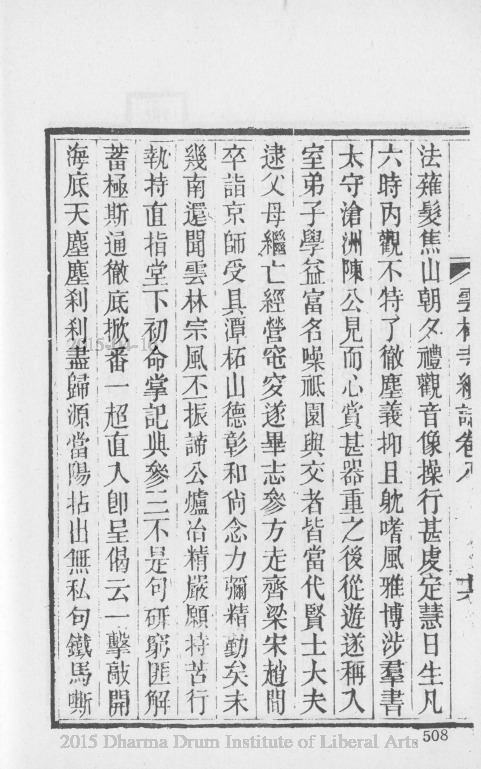 雲林寺續誌卷八
法薙髮焦山朝夕禮觀音像操行甚虔定慧日生凡
六時內觀不特了徹塵義抑且躭嗜風雅博涉羣書
太守滄洲陳公見而心賞甚器重之後從遊遂稱入
室弟子學益富名噪祗園與交者皆當代賢士大夫
逮父母繼亡經營窀穸遂畢志參方走齊梁宋趙間
卒詣京師受具潭柘山德彰和尙念力彌精動矣未
幾南還聞雲林宗風丕振諦公爐冶精嚴願持苦行
執持直指堂下初命掌記典參三不是句研窮匪解
蓄極斯通徹底掀番一超直入卽呈偈云一擊敲開
海底天塵塵刹利盡歸源當陽拈出無私句鐵馬嘶
508
2015 Dharma Drum Institute of Liberal Arts